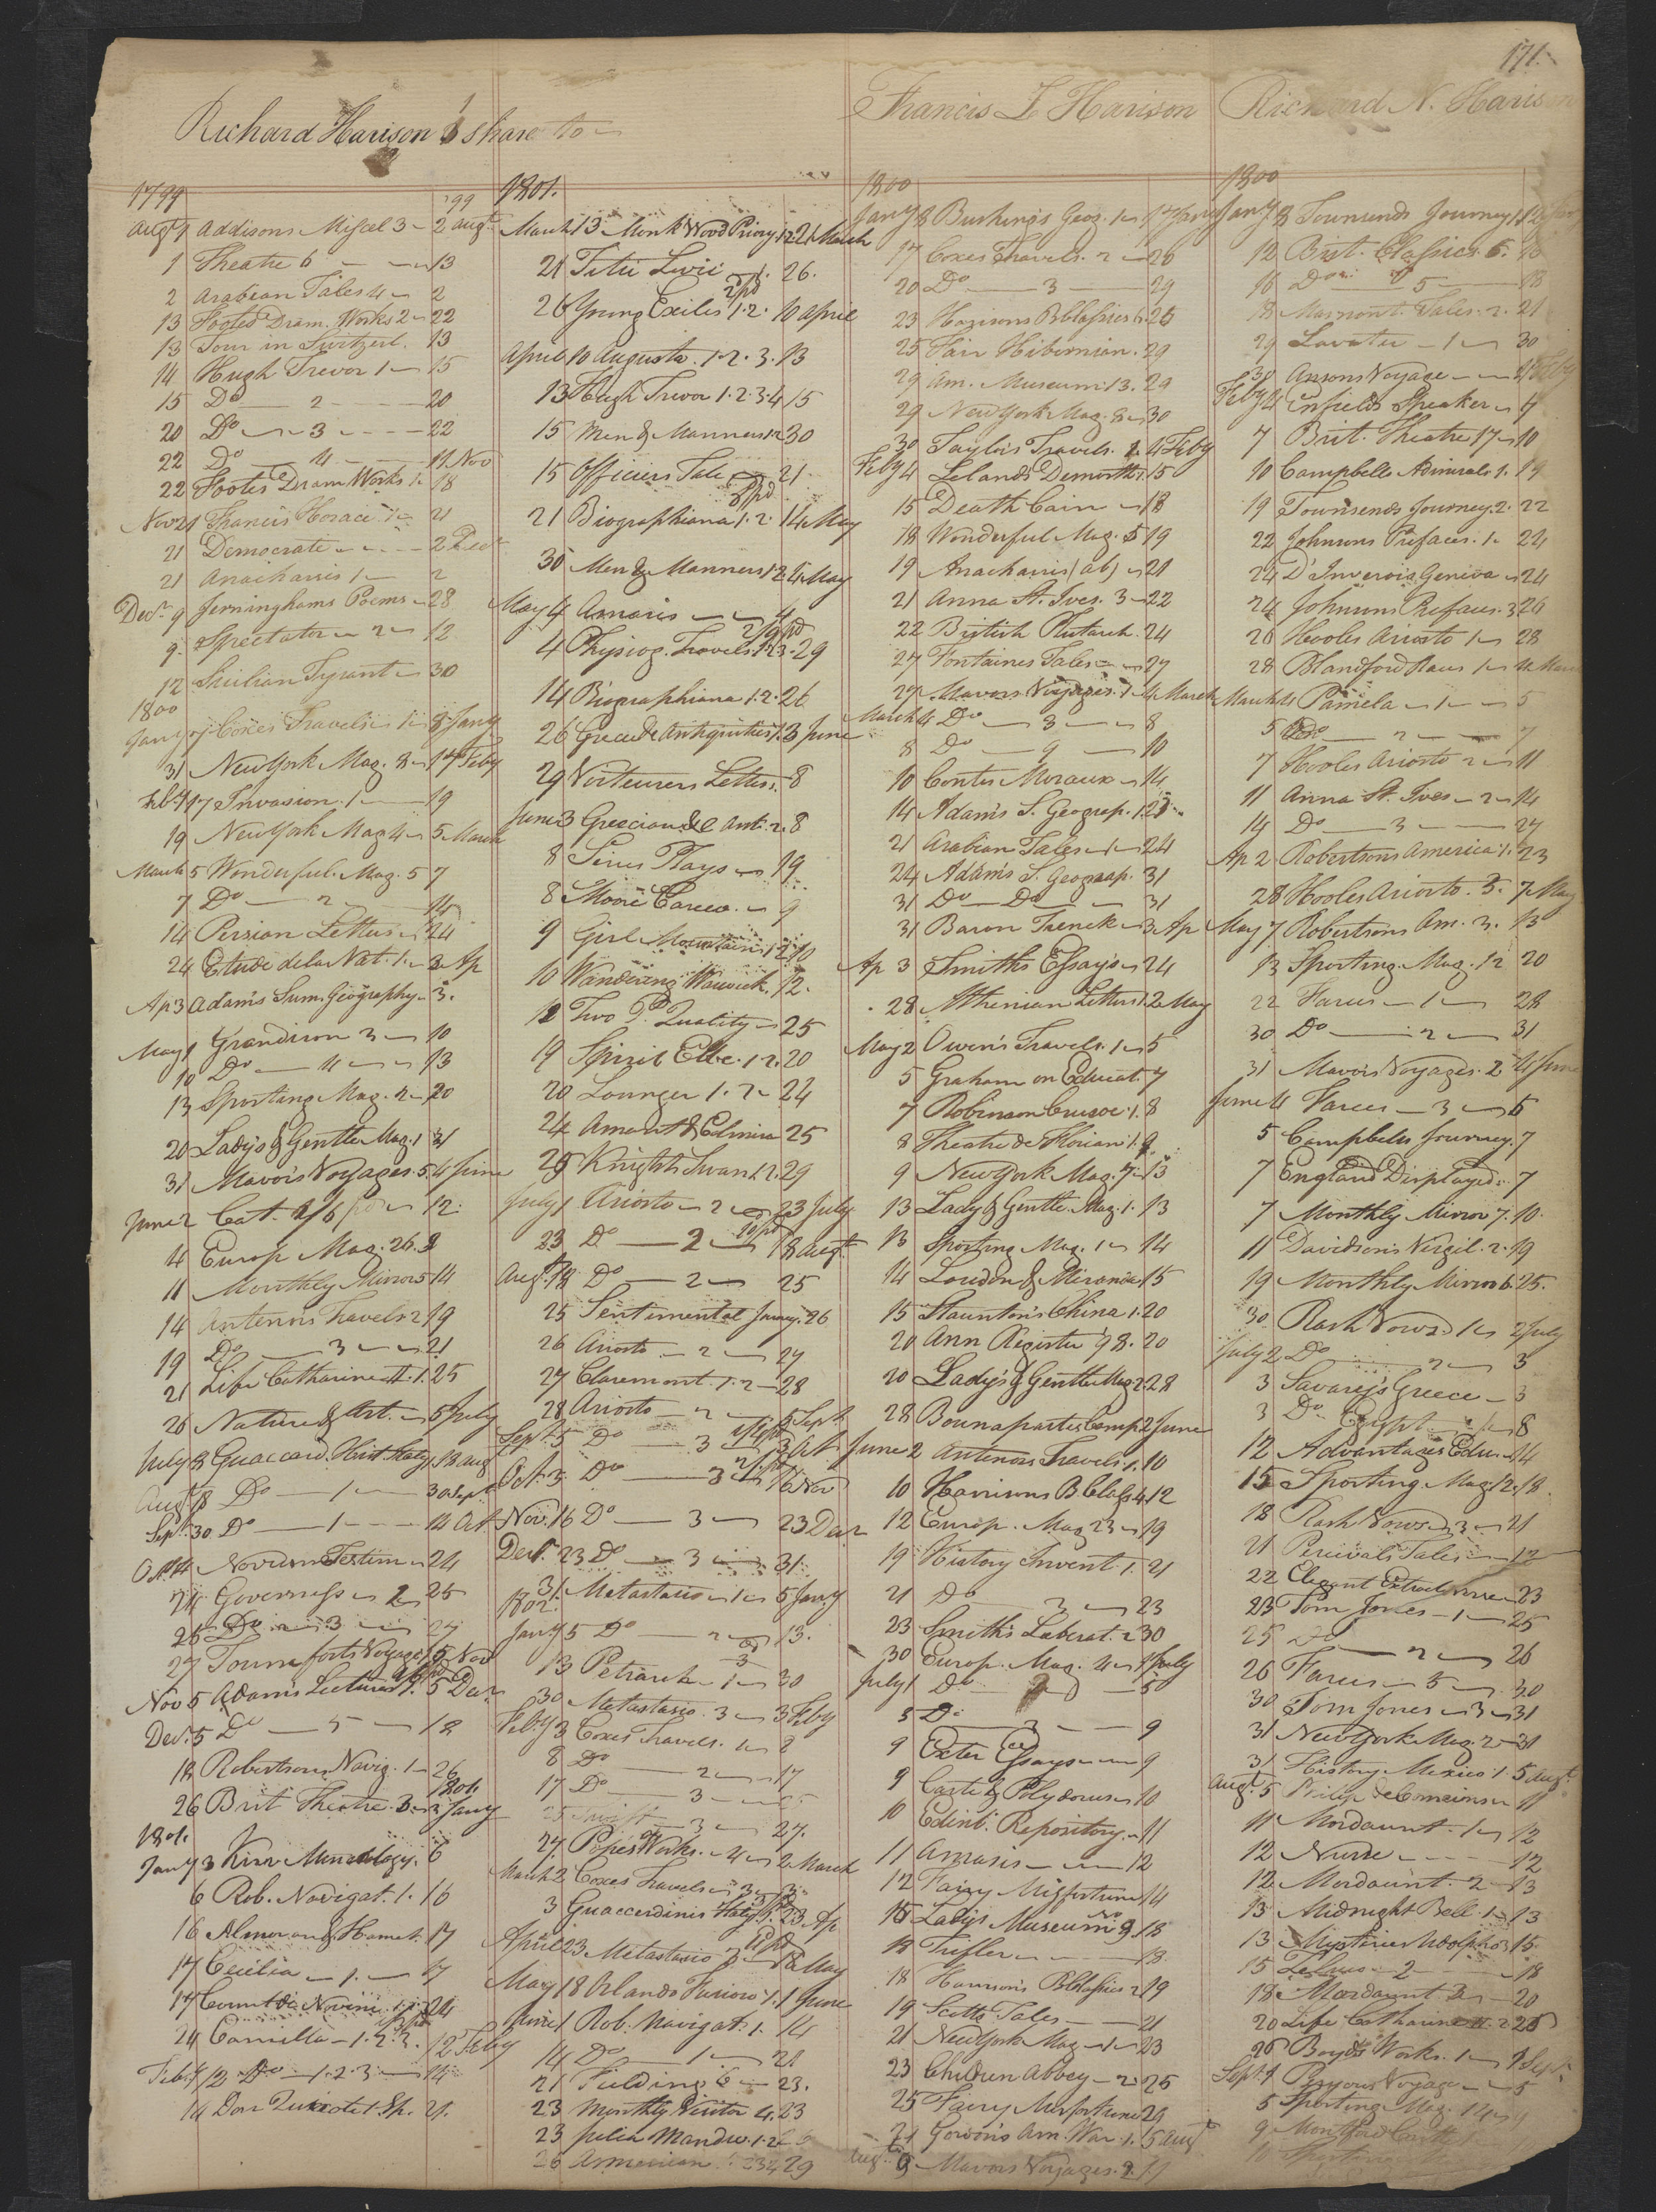 171.
Richard Harison 1 share to
Francis L Harison
Richard N. Harison
1799
99
Augt 1 Addisons Miscel 3 2 Augt
1 Theatre 6 13
2 Arabian Tales 4 2
13 Footes Dram. Works 2 22
13 Tour in Switzerl. 13
14 Hugh Trevor 1 15
15 Do 2 20
20 Do 3 22
22 Do 4 11 Nov
22 Footes Dram Works 1. 18
Nov 21 Francis Horace 1 21
21 Democrate 2 Decr
21 Anacharsis 1 2
Decr 9 Jerninghams Poems 28
9 Spectator 2 12
12 Sicilian Tyrant 30
1800
Jany 7 Coxes Travels 1 8 Jany
31 New York Mag. 8 17 Feby
Feby 17 Invasion. 1 19
19 New York Mag 4 5 March
March 5 Wonderful. Mag. 5 7
7 Do 2 14
14 Persian Letters 24
24 Etude de la Nat. 1. 3 Ap
Ap 3 Adams Sum. Geography 3.
May 1 Grandison 3 10
10 Do 4 13
13 Sporting Mag. 2 20
20 Lady's & Gentle Mag. 1 31
31 Mavor's Voyages. 5. 4 June
June 2 Cat. 2/6 pd 12
4 Europ Mag. 26. 9
11 Monthly Mirror 5 14
14 Antenors Travels 2 19
19 Do 3 21
21 Life Catharine II. 1. 25
26 Nature & Art. 5 July
July 8 Guaccard. Hist. Italy 1. 18 Aug
Augt 18 Do 1 30 Sept
Sept. 30 Do 1 14 Oct
Oct 14 Novum Testim 24
24 Governess 2 25
25 Do 3 27
27 Tournforts Voyage 1. 5 Nov
Nov 5 Adams Lectures 1. 5 Decr
Decr. 5 Do 5 18
18 Robertsons Navig. 1 26
1801
26 Brit Theatre. 3. 3 Jany
1801.
Jany 3 Kirw Minerology. 6
6 Rob. Navigat. 1. 16
16 Almoran & Hamet. 17
17 Cecilia 1. 17
17 Count de Novini 1. 24
24 Camilla 1. 2. 3. 12 Feby
Feby 12 Do 1. 2. 3 14
14 Don Quixote 1. Sp. 21.
1801.
March 13 Monk Wood Priory 1.2 21 March
21 Titii Livii 1. 26.
26 Young Exiles 1. 2. 10 April
April 10 Augusta. 1. 2. 3. 13
13 Hugh Trevor 1. 2. 3. 4 15
15 Men & Manners 1.2 30
15 Officers Tale 21
21 Biographiana 1. 2. 14 May
30 Men & Manners 1 2 4 May
May 4 Amasis 4
4 Physiog. Travels. 1. 2. 3. 29
14 Biographiana 1. 2. 26
26 Greece de Antiquities 1. 3 June
29 Vorteurers Letters. 8
June 3 Grecian &c Ant. 2. 8
8 Sirus Plays 19
8 Moore Carew. 9
9 Girl Mountain 1 2 10
10 Wandering Warwick. 12.
12 Two Ps Quality 25
19 Spirit Elb.e. 1. 2. 20
20 Lounger 1. 2 24
24 Amant & Elmira 25
25 Knights Swan 1. 2. 29
July 1 Ariosto 2 23 July
23 Do 2 18 Augt
Augt. 18 Do 2 25
25 Sentimental Journy. 26
26 Ariosto 2 27
27 Claremont. 1. 2 28
28 Ariosto 2 5 Sept
Sept. 5 Do 3 3 Oct
Oct. 3 Do 3 16 Nov
Nov. 16 Do 3 23 Decr
Decr. 23 Do 3 31
31 Metastasio 1 5 Jany
1802
Jany 5 Do 2 13.
13 Petrarch 1 30
30 Metastasio. 3 3 Feby
Feby 3 Coxes Travels. 1 8
8 Do 2 17
17 Do 3 25
25 Swift 3 27.
27. Popes Works. 4 2 March
March 2 Coxes Travels 3 3
3 Guaccerdinis Italy 1. 23 Ap
April 23 Metastasio 18 May
May 18 Orlando Furioso 1. 1 June
June 1 Rob. Navigat. 1. 14
14 Do 1 21
21 Fielding 6 23.
23 Monthly Visitor 4. 23
23 Julia Mandw. 1. 2
26 Armenian 29
1800
Jany 8 Bushings Geog. 1 17 Jany
17 Coxes Travels. 2 20
20 Do 3 29
23 Harisons B Classics 6. 25
25 Fair Hibernian. 29
29 Am. Museum. 13. 29
29 New York Mag. 8 30
30 Taylor's Travels. 2. 4 Feby
Feby 4 Lelands Demosth. 1. 15
15 Death Cain 18
18 Wonderful Mag. 5 19
19 Anacharsis (ab) 21
21 Anna St. Ives. 3 22
22 British Plutarch. 24
27 Fontaines Tales 27
27 Mavors Voyages. 1 4 March
March 4 Do 3 8
8 Do 9 10
10 Contes Moraux 14
14 Adams S. Geograp. 1. 21
21 Arabian Tales 1 24
24 Adams S. Geograp. 31
31 Do Do 31
31 Baron Trenck 3 Ap
Ap 3 Smiths Essays 24
28 Athenian Letters 1. 2 May
May 2 Owen's Travels. 1 5
5 Graham on Educat. 7
7 Robinson Crusoe. 1. 8
8 Theatre de Florian 1. 9
9 New York Mag. 7 13
13 Lady & Gentle. Mag. 1. 13
13 Sporting Mag. 1 14
14 Louden & Miranda 15
15 Stauntons China 1. 20
20 Ann Register 98. 20
20 Lady's & Gentle Mag 2. 28
28 Bounaparte's Camp 2 June
June 2 Antenors Travels 1. 10
10 Harrisons B Class 4. 12
12 Europ. Mag 23 19
19 History Invent. 1. 21
21 Do 2 23
23 Smith's Laborat. 2 30
30 Europ. Mag. 4 1 July
July 1 Do 5
5 Do 3 9
9 Exter Essays 9
9 Carite & Polydorus 10
10 Edinb. Repository. 11
11 Amasis 12
12 Fairy Misfortune 14
15 Ladys Museum No 9 18
18 Trifler 18
18 Harrison's B Classics 2 19
19 Scotts Tales 21
21 New York Mag 1 23
23 Children Abbey 2 25
25 Fairy Misfortune 29
21 Gordon's Am. War. 1. 5 Augt
Augt. 5 Mavors Voyages. 2. 11
1800
Jany 8 Townsends Journey 1 12 Jany
12 Brit. Classics 6. 16
16 Do 5 18
18 Marmont. Tales. 2. 21
29 Lavater 1 30
30 Ansons Voyage 4 Feby
Feby 4 Enfields Speaker 7
7 Brit. Theatre 17 10
10 Campbells Admirals 1. 19
19 Townsends Journey. 2. 22
22 Johnsons Prefaces. 1. 24
24 D'Ivernois Geneva 24
24 Johnsons Prefaces. 3 26
26 Hooles Ariosto 1 28
28 Blandford Races 1 4 March
March 4 Pamela 1 5
5 Do 2 7
7 Hooles Ariosto 2 11
11 Anna St. Ives 2 14
14 Do 3 27
Ap 2 Robertsons America 1. 23
28 Hooles Ariosto. 3. 7 May
May 7 Robertsons Am. 3. 13
13 Sporting Mag. 12 20
22 Farces 1 28
30 Do 2 31
31 Mavors Voyages. 2 4 June
June 4 Farces 3 5
5 Campbells Journey. 7
7 England Displayed 7
7 Monthly Mirror 7. 10.
11 Davidson's Virgil. 2. 19
19 Monthly Mirror 6. 25.
30 Rash Vows 1 2 July
July 2 Do 2 3
3 Savary's Greece 3
3 Do Egypt 1 8
12 Advantages Edu. 14
15 Sporting Mag 12. 18
18 Rash Vows 3 21
21 Percivals Tales 12
22 Elegant Extracts 23
23 Tom Jones 1 25
25 Do 2 26
26 Farces 5 30
30 Tom Jones 3 31
31 New York Mag. 2 31
31 History Mexico 1. 5 Augt
Augt. 5 Philip de Comeines 11
11 Mordaunt. 1 12
12 Nurse 12
12 Mordaunt. 2 13
13 Midnight Bell. 1 13
13 Mysteries Udolpho 3 15
15 2 18
18 Mordaunt 3 20
20 Life Catharine II. 2 26
26 Boyds Works. 1 1 Sept
Sept 1 Voyage 5
5 Sporting Mag. 14
9 Montford Castle